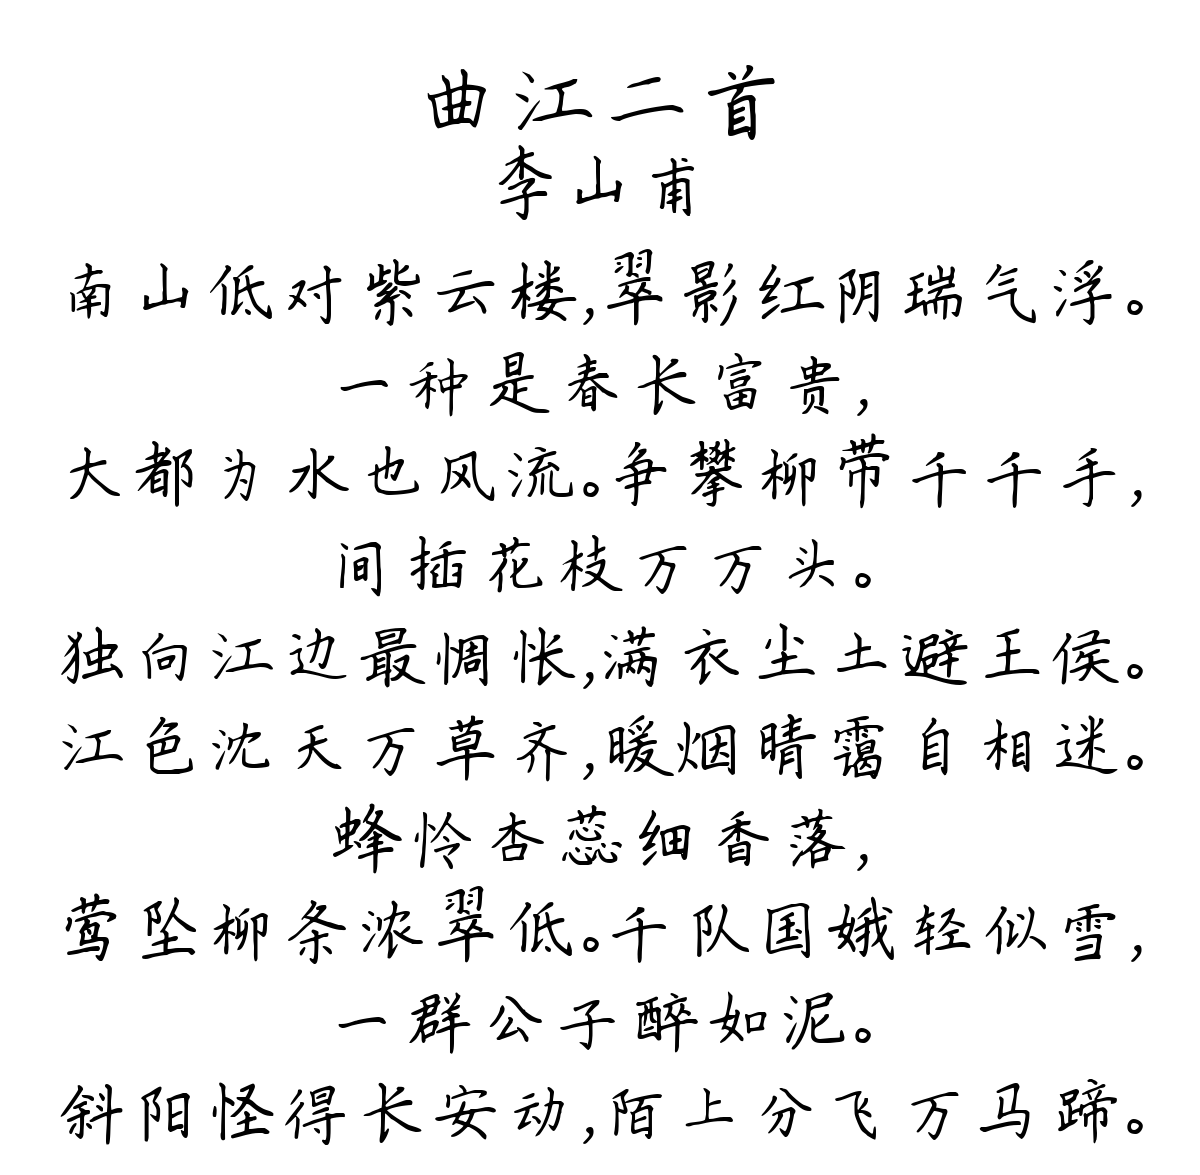 曲江二首
李山甫
南山低对紫云楼,翠影红阴瑞气浮。
一种是春长富贵,
大都为水也风流。争攀柳带千千手,
间插花枝万万头。
独向江边最惆怅,满衣尘土避王侯。
江色沈天万草齐,暖烟晴霭自相迷。
蜂怜杏蕊细香落,
莺坠柳条浓翠低。千队国娥轻似雪,
一群公子醉如泥。
斜阳怪得长安动,陌上分飞万马蹄。